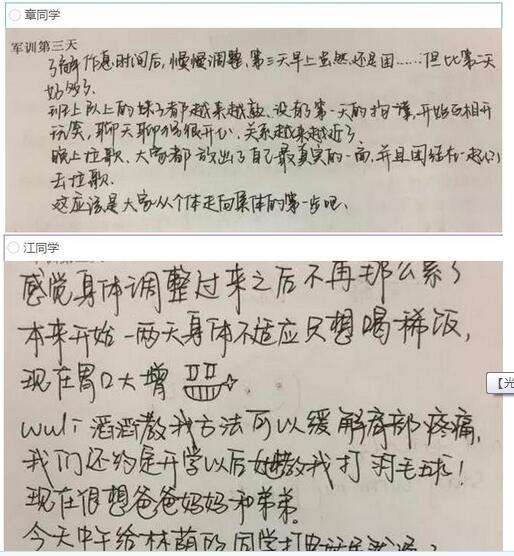 章同学
军训第三天
了解作息时间后，慢慢调整，第三天早上虽然还是困……但比第二天
好多了。
班上队上的妹子都越来越熟，没有了第一天的拘谨，开始互相开
玩笑，聊天聊得很开心，关系越来越近了。
晚上拉歌，大家都放出了自己最真实的一面，并且团结在一起
去拉歌。
这应该是大家从个体走向集体的第一步吧、
江同学
感觉身体调整过来之后不再那么累了
本来开始一两天身体不适应只想喝稀饭，
现在胃口大增
wuli滔滔教我方法可以缓解肩部疼痛，
我们还约定开学以后她教我打羽毛球！
现在很想爸爸妈妈和弟弟。
今天中午给林荫的同学打
【光